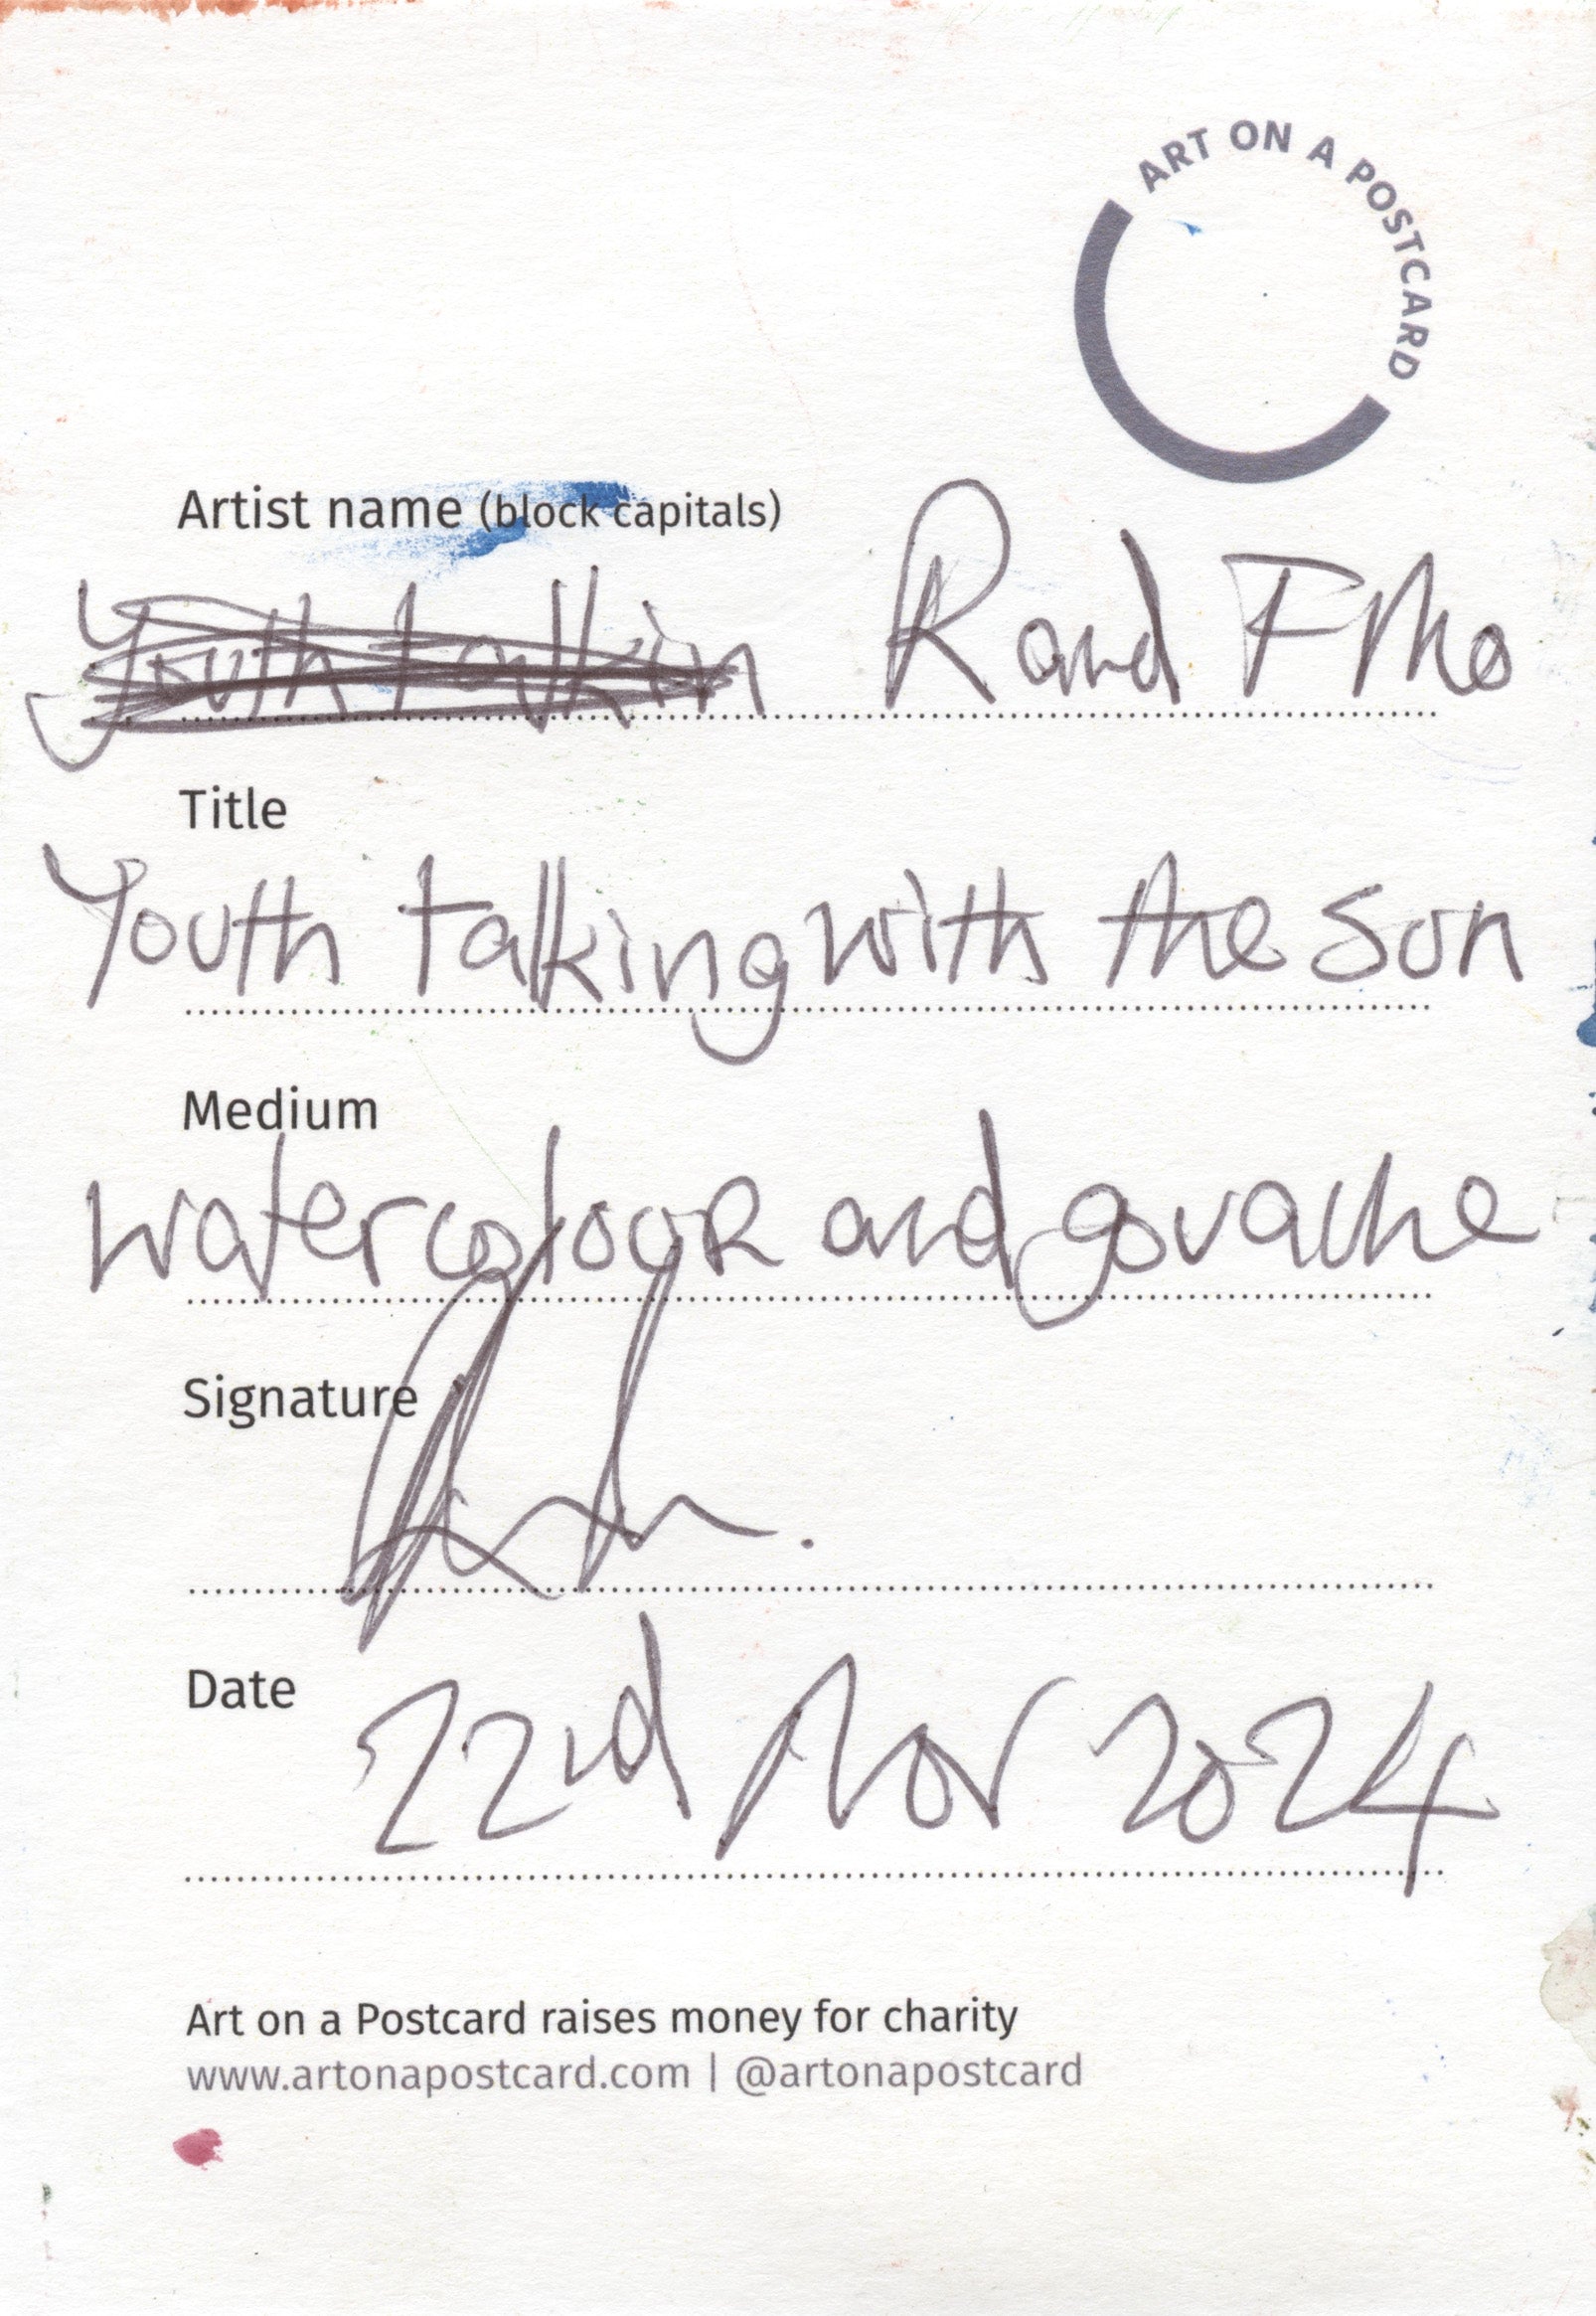 ART ON A POSTCARD
Artist name (block capitals)
Youth talkin Rand
Title
Youth talking with the Sun
Medium
watercolouR and gouache
Signature
Date 22nd Nov 2024
Art on a Postcard raises money for charity
www.artonapostcard.com | @artonapostcard